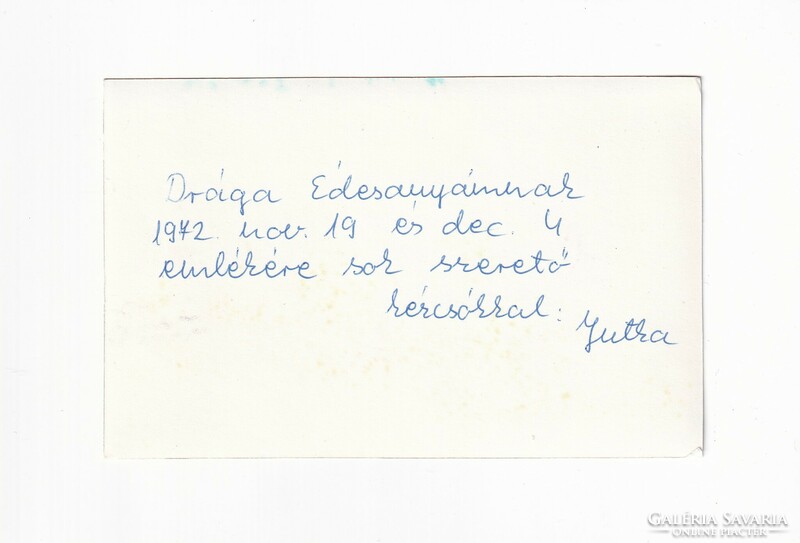 Drága Édesanyámnak
1972. nov. 19 és dec. 4
emlékére sok szerető
kézcsókkal:
Jutka
GALÉRIA SAVARIA
ONLINE PIACTÉR